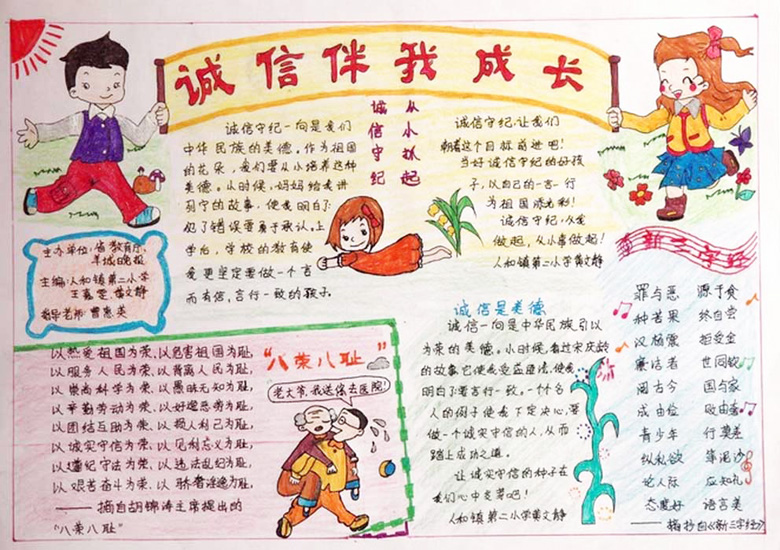 诚信伴我成长
从小抓起
诚信守纪
诚信守纪一向是我们
中华民族的美德。作为祖国
的花朵,我们要从小培养这种
美德。从小时候,妈妈给我讲
列宁的故事,使我明白了
犯了错误要勇于承认。上
学后,学校的教育使
我更坚定要做一个言
而有信,言行一致的孩子。
诚信守纪,让我们
朝着这个目标前进吧!
当好诚信守纪的好孩
子,以自己的一言一行
为祖国添光彩!
诚信守纪,从我
做起,从小事做起!
人和镇第二小学黄文静
主办单位:省教育厅、
羊城晚报
主编:人和镇第二小学
王嘉雯、黄文静
指导老师:曾惠英
"八荣八耻"
以热爱祖国为荣,以危害祖国为耻,
以服务人民为荣,以背离人民为耻,
以崇尚科学为荣,以愚昧无知为耻,
以辛勤劳动为荣,以好逸恶劳为耻,
以团结互助为荣,以损人利己为耻,
以诚实守信为荣,以见利忘义为耻,
以遵纪守法为荣,以违法乱纪为耻,
以艰苦奋斗为荣,以骄奢淫逸为耻。
——摘自胡锦涛主席提出的
"八荣八耻"
老大爷,我送您去医院!
诚信是美德
诚信一向是中华民族引以
为荣的美德。小时候,看过宋庆龄
的故事它使我受益匪浅,使我
明白了要言行一致。一个个名
人的例子使我下定决心,要
做一个诚实守信的人,从而
踏上成功之道。
让诚实守信的种子在
我们心中发芽吧!
人和镇第二小学黄文静
新三字经
罪与恶 源于贪
种苦果 终自尝
汉杨震 拒受金
廉洁者 世同钦
阅古今 国与家
成由俭 败由奢
青少年 行莫差
纵私欲 靠泥沙
论人际 应知礼
态度好 语言美
——摘抄自《新三字经》